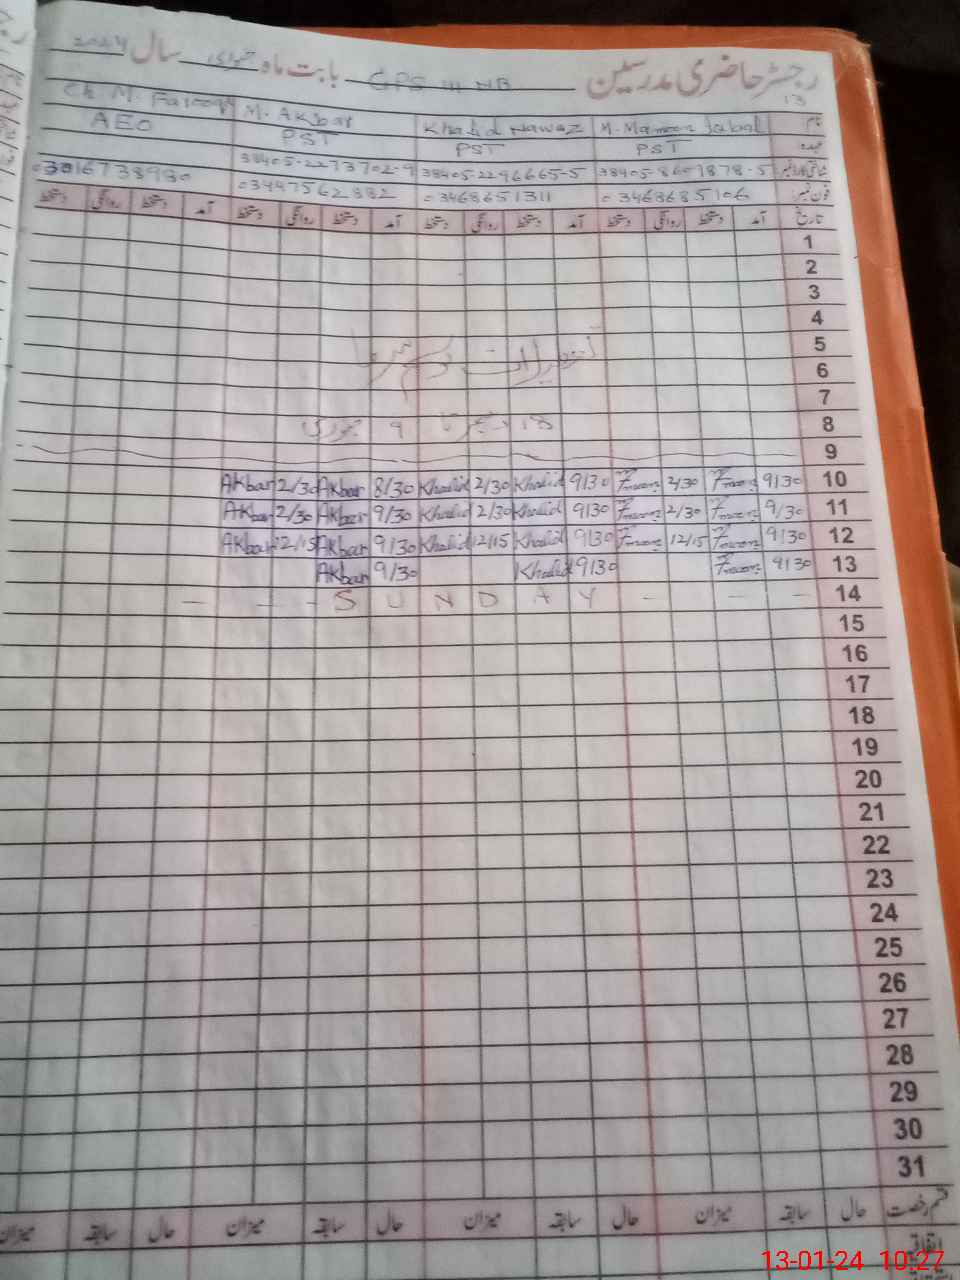 رجسٹر حاضری مدرسین GPS 111 NB بابت ماہ جنوری سال 2024
13
نام M. Mamoon Iqbal Khalid Nawaz M. Akbar Ch. M. Farooq
عہدہ PST PST PST AEO
38405-8607878-5 38405-2296665-5 38405-2273702-9
فون نمبر 03468685106 03468651311 03447562882 03016738980
تاریخ آمد دستخط روانگی دستخط آمد دستخط روانگی دستخط آمد دستخط روانگی دستخط آمد دستخط روانگی دستخط
1
2
3
4
5 تعطیلات موسم سرما
6
7
8 18 دسمبر تا 9 جنوری
9
10 9/30 2/30 9/30 Khalid 2/30 Khalid 8/30 Akbar 2/30 Akbar
11 9/30 2/30 9/30 Khalid 2/30 Khalid 9/30 Akbar 2/30 Akbar
12 9/30 12/15 9/30 Khalid 12/15 Khalid 9/30 Akbar 12/15 Akbar
13 9/30 9/30 Khalid 9/30 Akbar
14 - - - - S U N D A Y - - -
15
16
17
18
19
20
21
22
23
24
25
26
27
28
29
30
31
قسم رخصت حال سابقہ میزان حال سابقہ میزان حال سابقہ میزان حال سابقہ میزان
اتفاقیہ
13-01-24 10:27